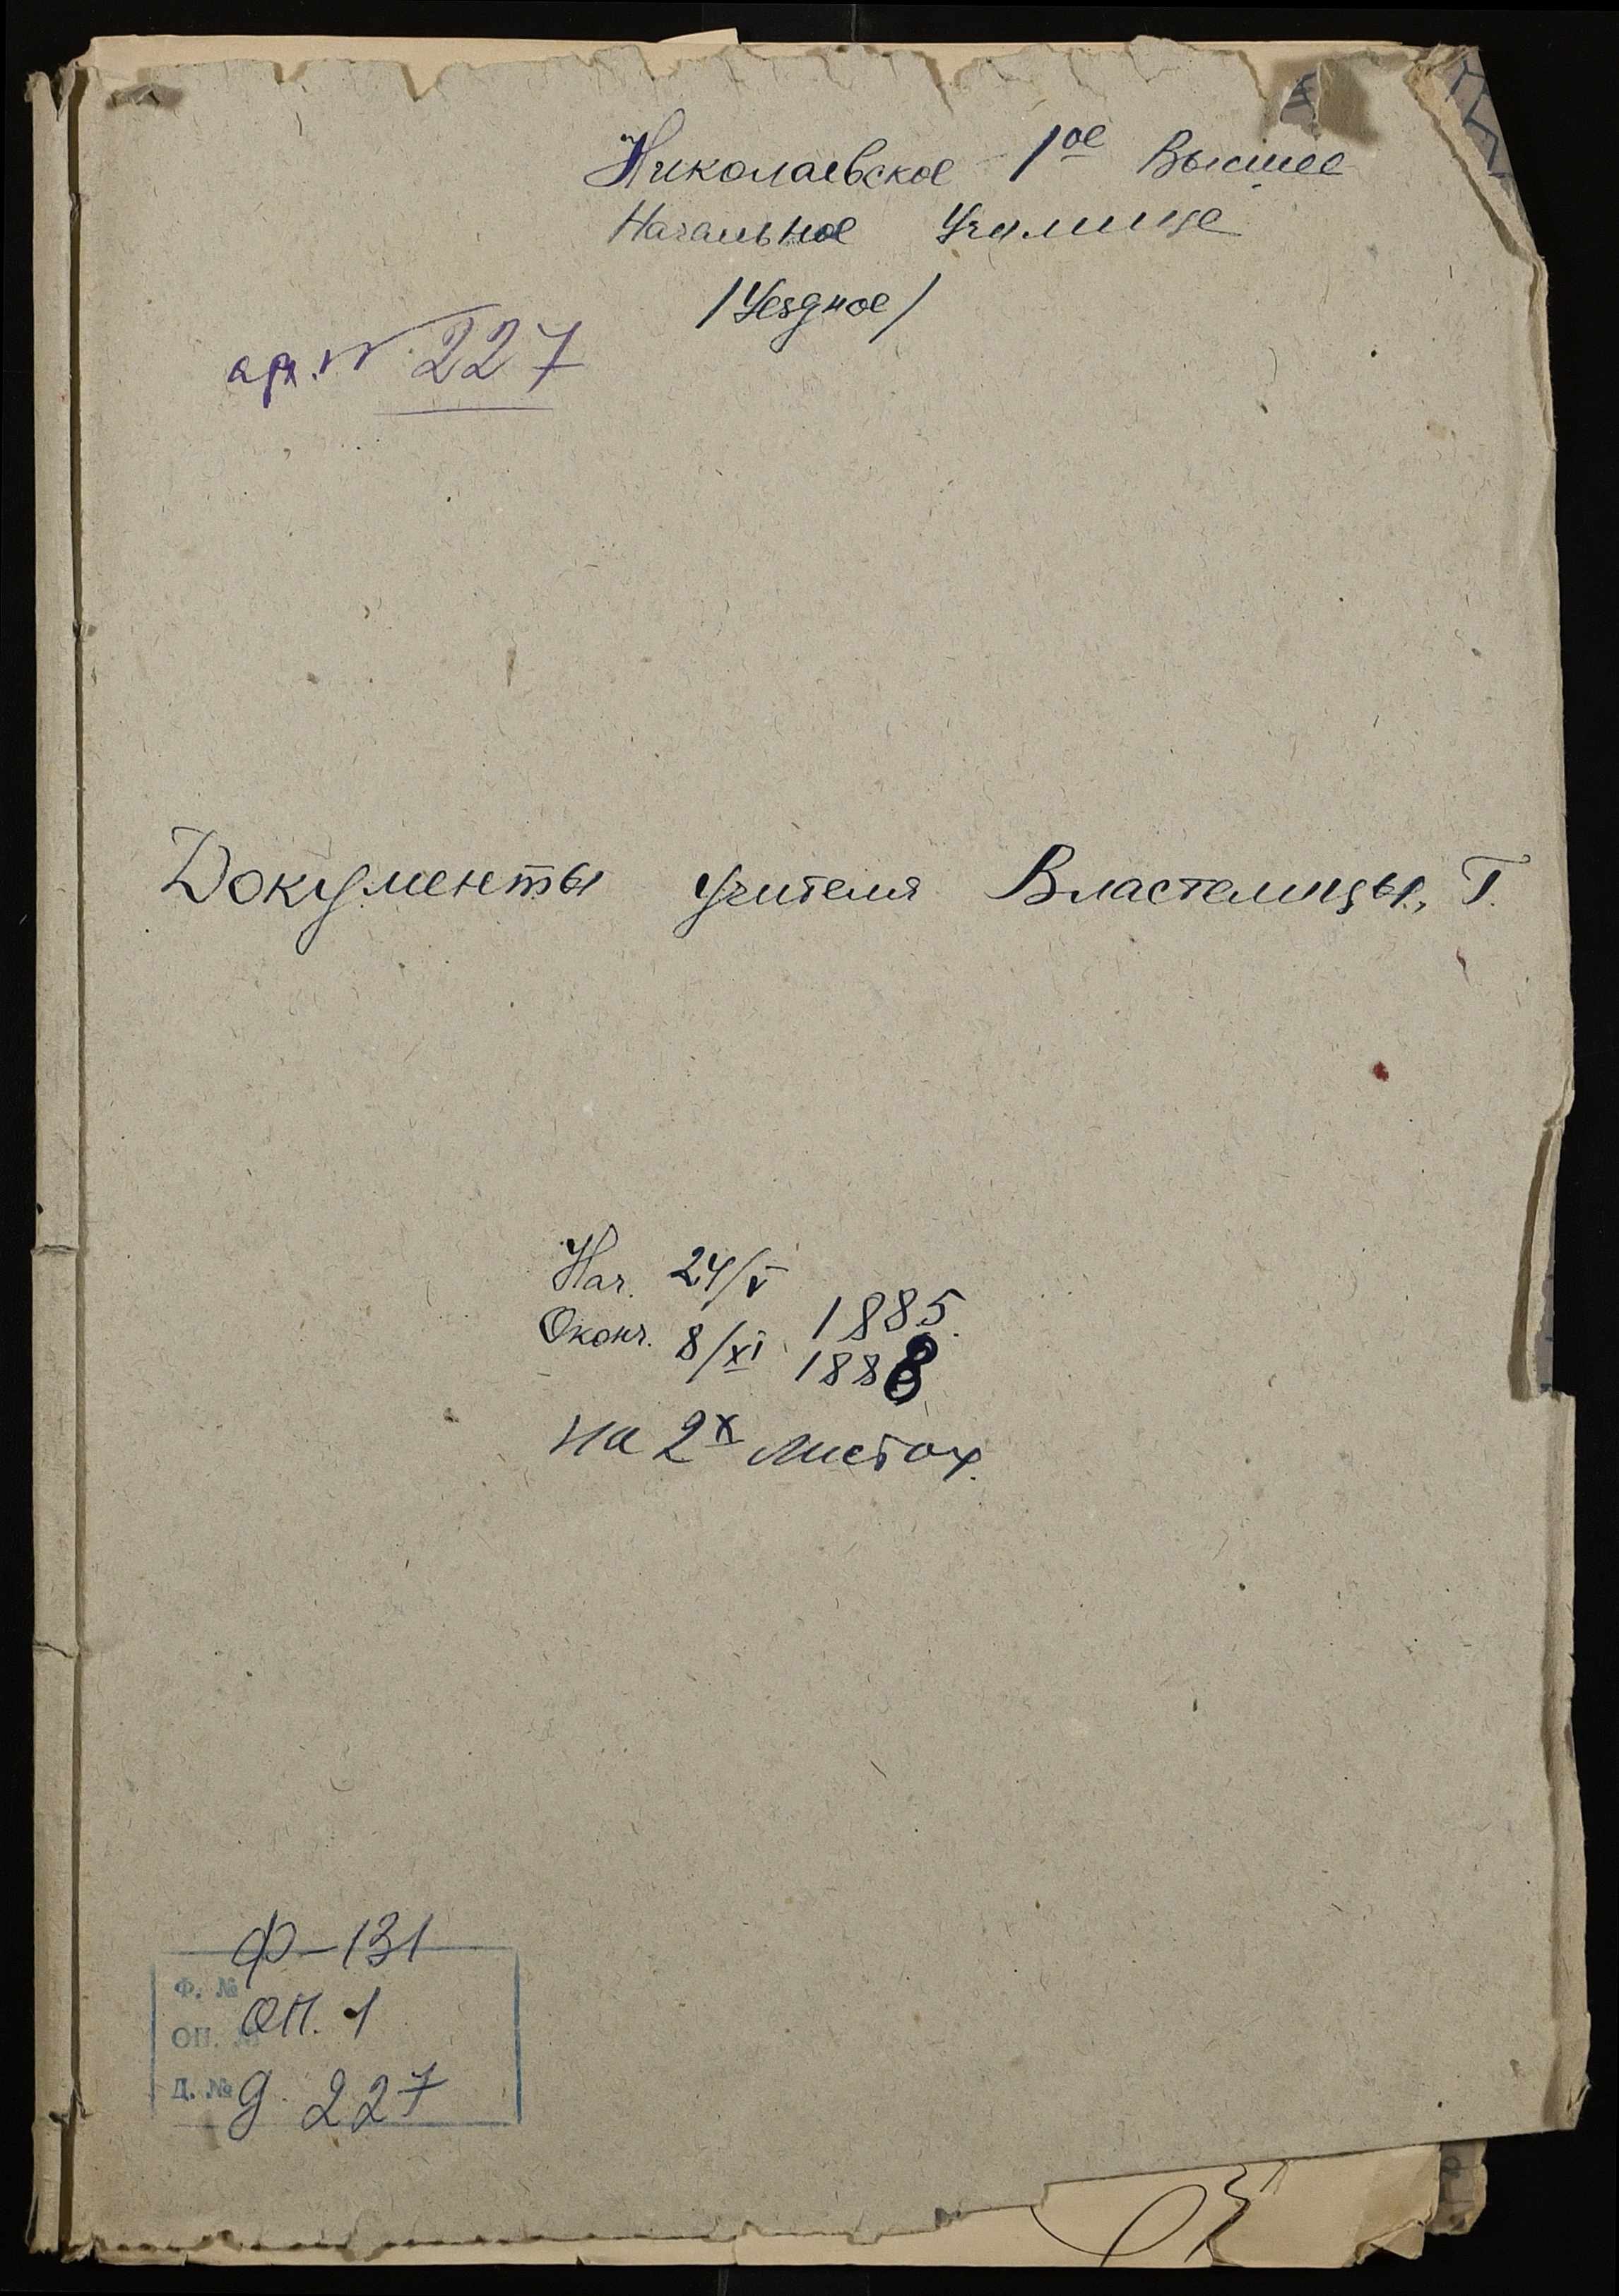 Николаевское 1ое Высшее
Начальное Училище
/Уездное/
ар. № 227
Документы учителя Властелицы, Г.
Нач. 24/V 1885.
Оконч. 8/XI 1888
на 2х листах.
Ф-131
Ф. №
оп. 1
ОП. №
д. 227
Д. №